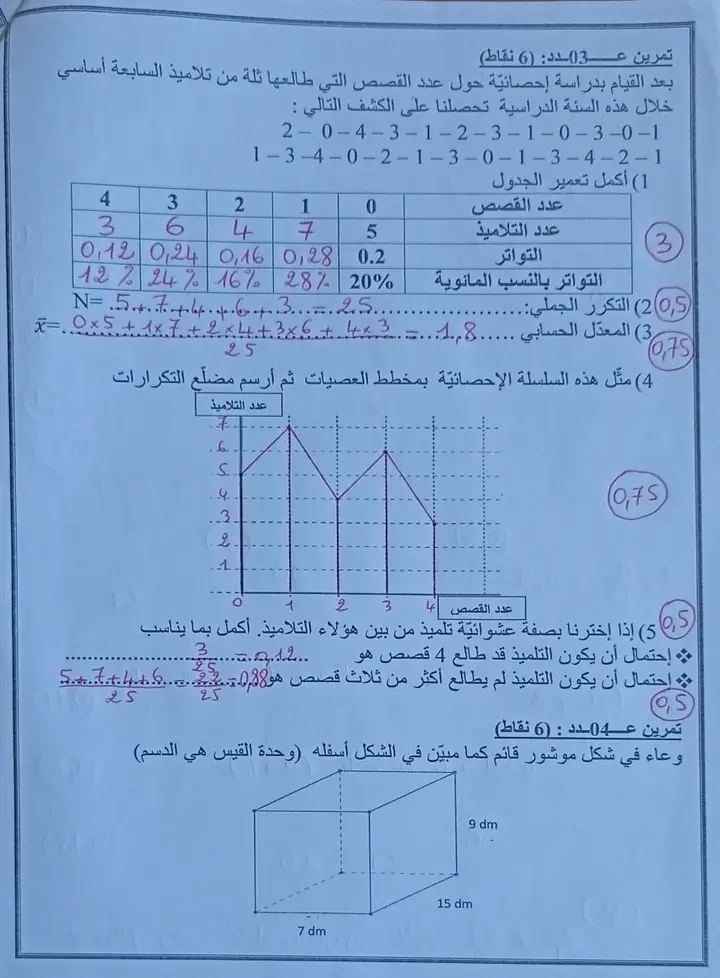 تمرين عـــــ03ــدد: (6 نقاط)
بعد القيام بدراسة إحصائيّة حول عدد القصص التي طالعها ثلة من تلاميذ السابعة أساسي
خلال هذه السنة الدراسية تحصلنا على الكشف التالي :
2 – 0 – 4 – 3 – 1 – 2 – 3 – 1 – 0 – 3 – 0 – 1
1 – 3 – 4 – 0 – 2 – 1 – 3 – 0 – 1 – 3 – 4 – 2 – 1
1) أكمل تعمير الجدول
عدد القصص 0 1 2 3 4
عدد التلاميذ 5 7 4 6 3
التواتر 0.2 0,28 0,16 0,24 0,12
التواتر بالنسب المائوية 20% 28% 16% 24% 12%
3
2) التكرر الجملي: N= 5+7+4+6+3 = 25
0,5
3) المعدّل الحسابي x̄= 0×5+1×7+2×4+3×6+4×3 = 1,8
25
0,75
4) مثّل هذه السلسلة الإحصائيّة بمخطط العصيات ثم أرسم مضلّع التكرارات
عدد التلاميذ
7
6
5
4
3
2
1
0 1 2 3 4
عدد القصص
0,75
5) إذا إخترنا بصفة عشوائيّة تلميذ من بين هؤلاء التلاميذ. أكمل بما يناسب
0,5
❖ إحتمال أن يكون التلميذ قد طالع 4 قصص هو 3/25 = 0,12
❖ إحتمال أن يكون التلميذ لم يطالع أكثر من ثلاث قصص هو 5+7+4+6/25 = 22/25 = 0,88
0,5
تمرين عـــ04ــدد : (6 نقاط)
وعاء في شكل موشور قائم كما مبيّن في الشكل أسفله (وحدة القيس هي الدسم)
9 dm
15 dm
7 dm